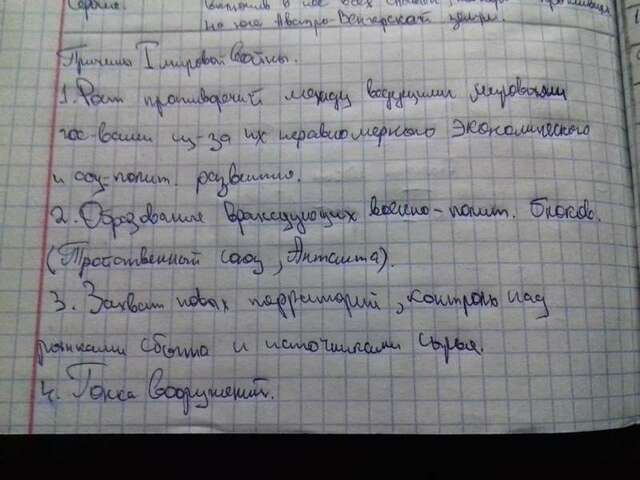 Сербию.
включив в нее всех
на юге Австро-Венгерской импери.
Причины I мировой войны.
1. Рост противоречий между ведущими мировыми
гос-вами из-за их неравномерного экономического
и соц-полит. развития.
2. Образование враждующих военно-полит. блоков.
(Тройственный союз, Антанта).
3. Захват новых территорий, контроль над
рынками сбыта и источниками сырья.
4. Гонка вооружений.